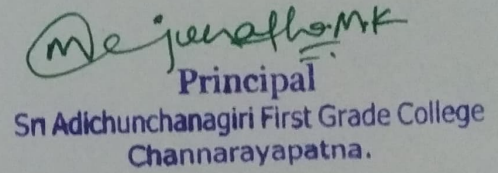 Manjunatha.M.K
Principal
Sri Adichunchanagiri First Grade College
Channarayapatna.